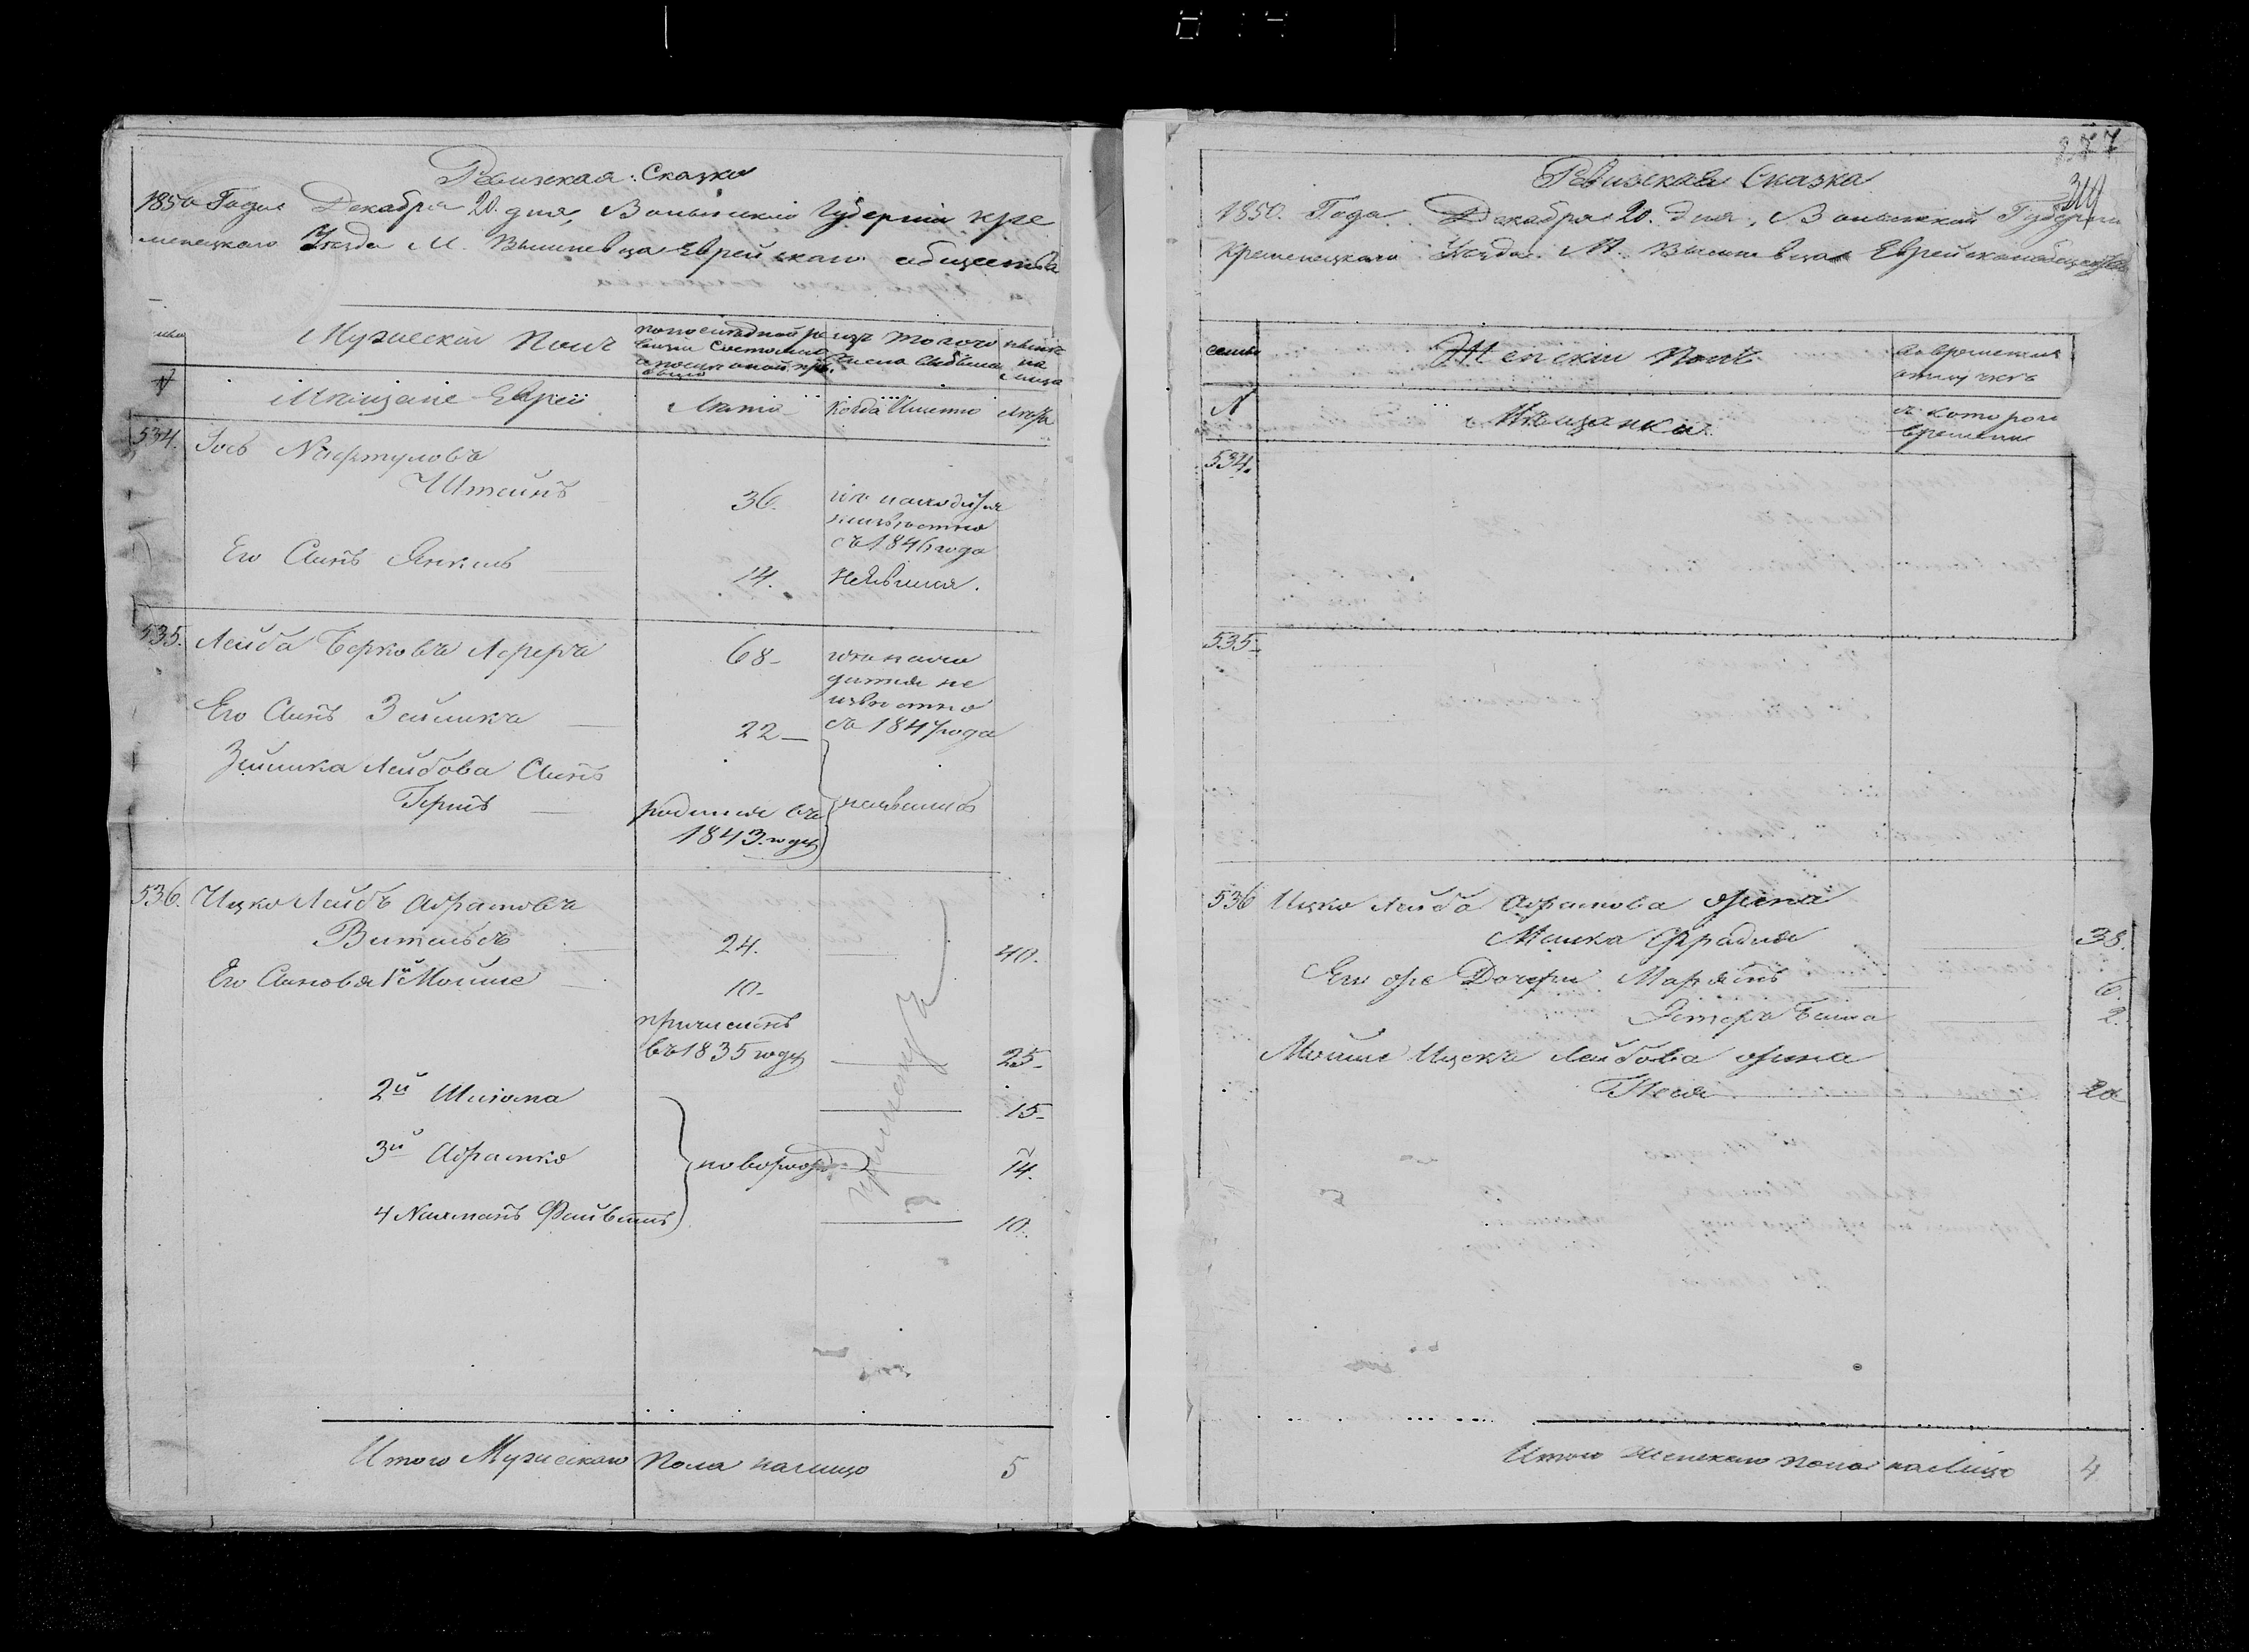 Ревизская Сказка
1850 Года Декабря 20. дня, Волынской Губернии Кре
менецкаго Уезда М. Вишневца Еврейскаго общества
Мужеский Полъ
по последней ре
визіи состояло
изъ того
числа выбыло
ныне
на
лицо
№
Мещане Евреи
Лета
Когда Именно
Лета
534.
Іось
Штейнъ
36.
съ 1846 года
Его Сынъ Янкель
14.
неявился.
535.
Лейба Берковъ Лереръ
68
не
известно
съ 1847 года
Его Сынъ Зейликъ
22
Зейлика Лейбова Сынъ
Гершъ
родился въ
1843. году
неявились
536.
Ицко Лейбъ Абрамовъ
Вительсъ
24.
40.
Его Сыновья 1й Мойше
10
причисленъ
въ 1835 году
25
2й Шлiома
15
3й Абрамко
новорожд
14.
4 Нахманъ Файвишъ
10.
Итого Мужескаго Пола налицо
5
277
Ревизская Сказка
1850. Года Декабря 20. дня, Волынской Губернии
Кременецкаго Уезда М. Вишневца Еврейскаго общества
семьи
Женский Полъ
во временной
отлучке
№
Мещанки
съ котораго
времени
534.
535
536
Ицко Лейба Абрамова жена
Малка Фрадля
38.
Его же Дочери Марьямъ
6.
Эстеръ Бейла
2.
Мойше Ицекъ Лейбова жена
Песя
20
Итого женскаго пола налицо
4